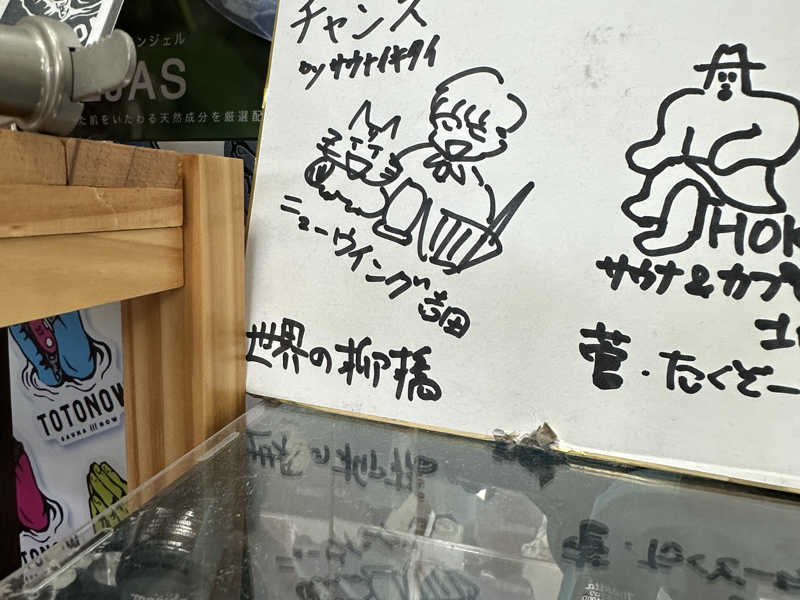 チャンス
by サウナイキタイ
ニューウイング 吉田
世界の柳橋
HOK
サウナ&カプセ
菅・たくぞー
ンジェル
AS
た肌をいたわる天然成分を厳選配
TOTONOW
SAUNA NOW